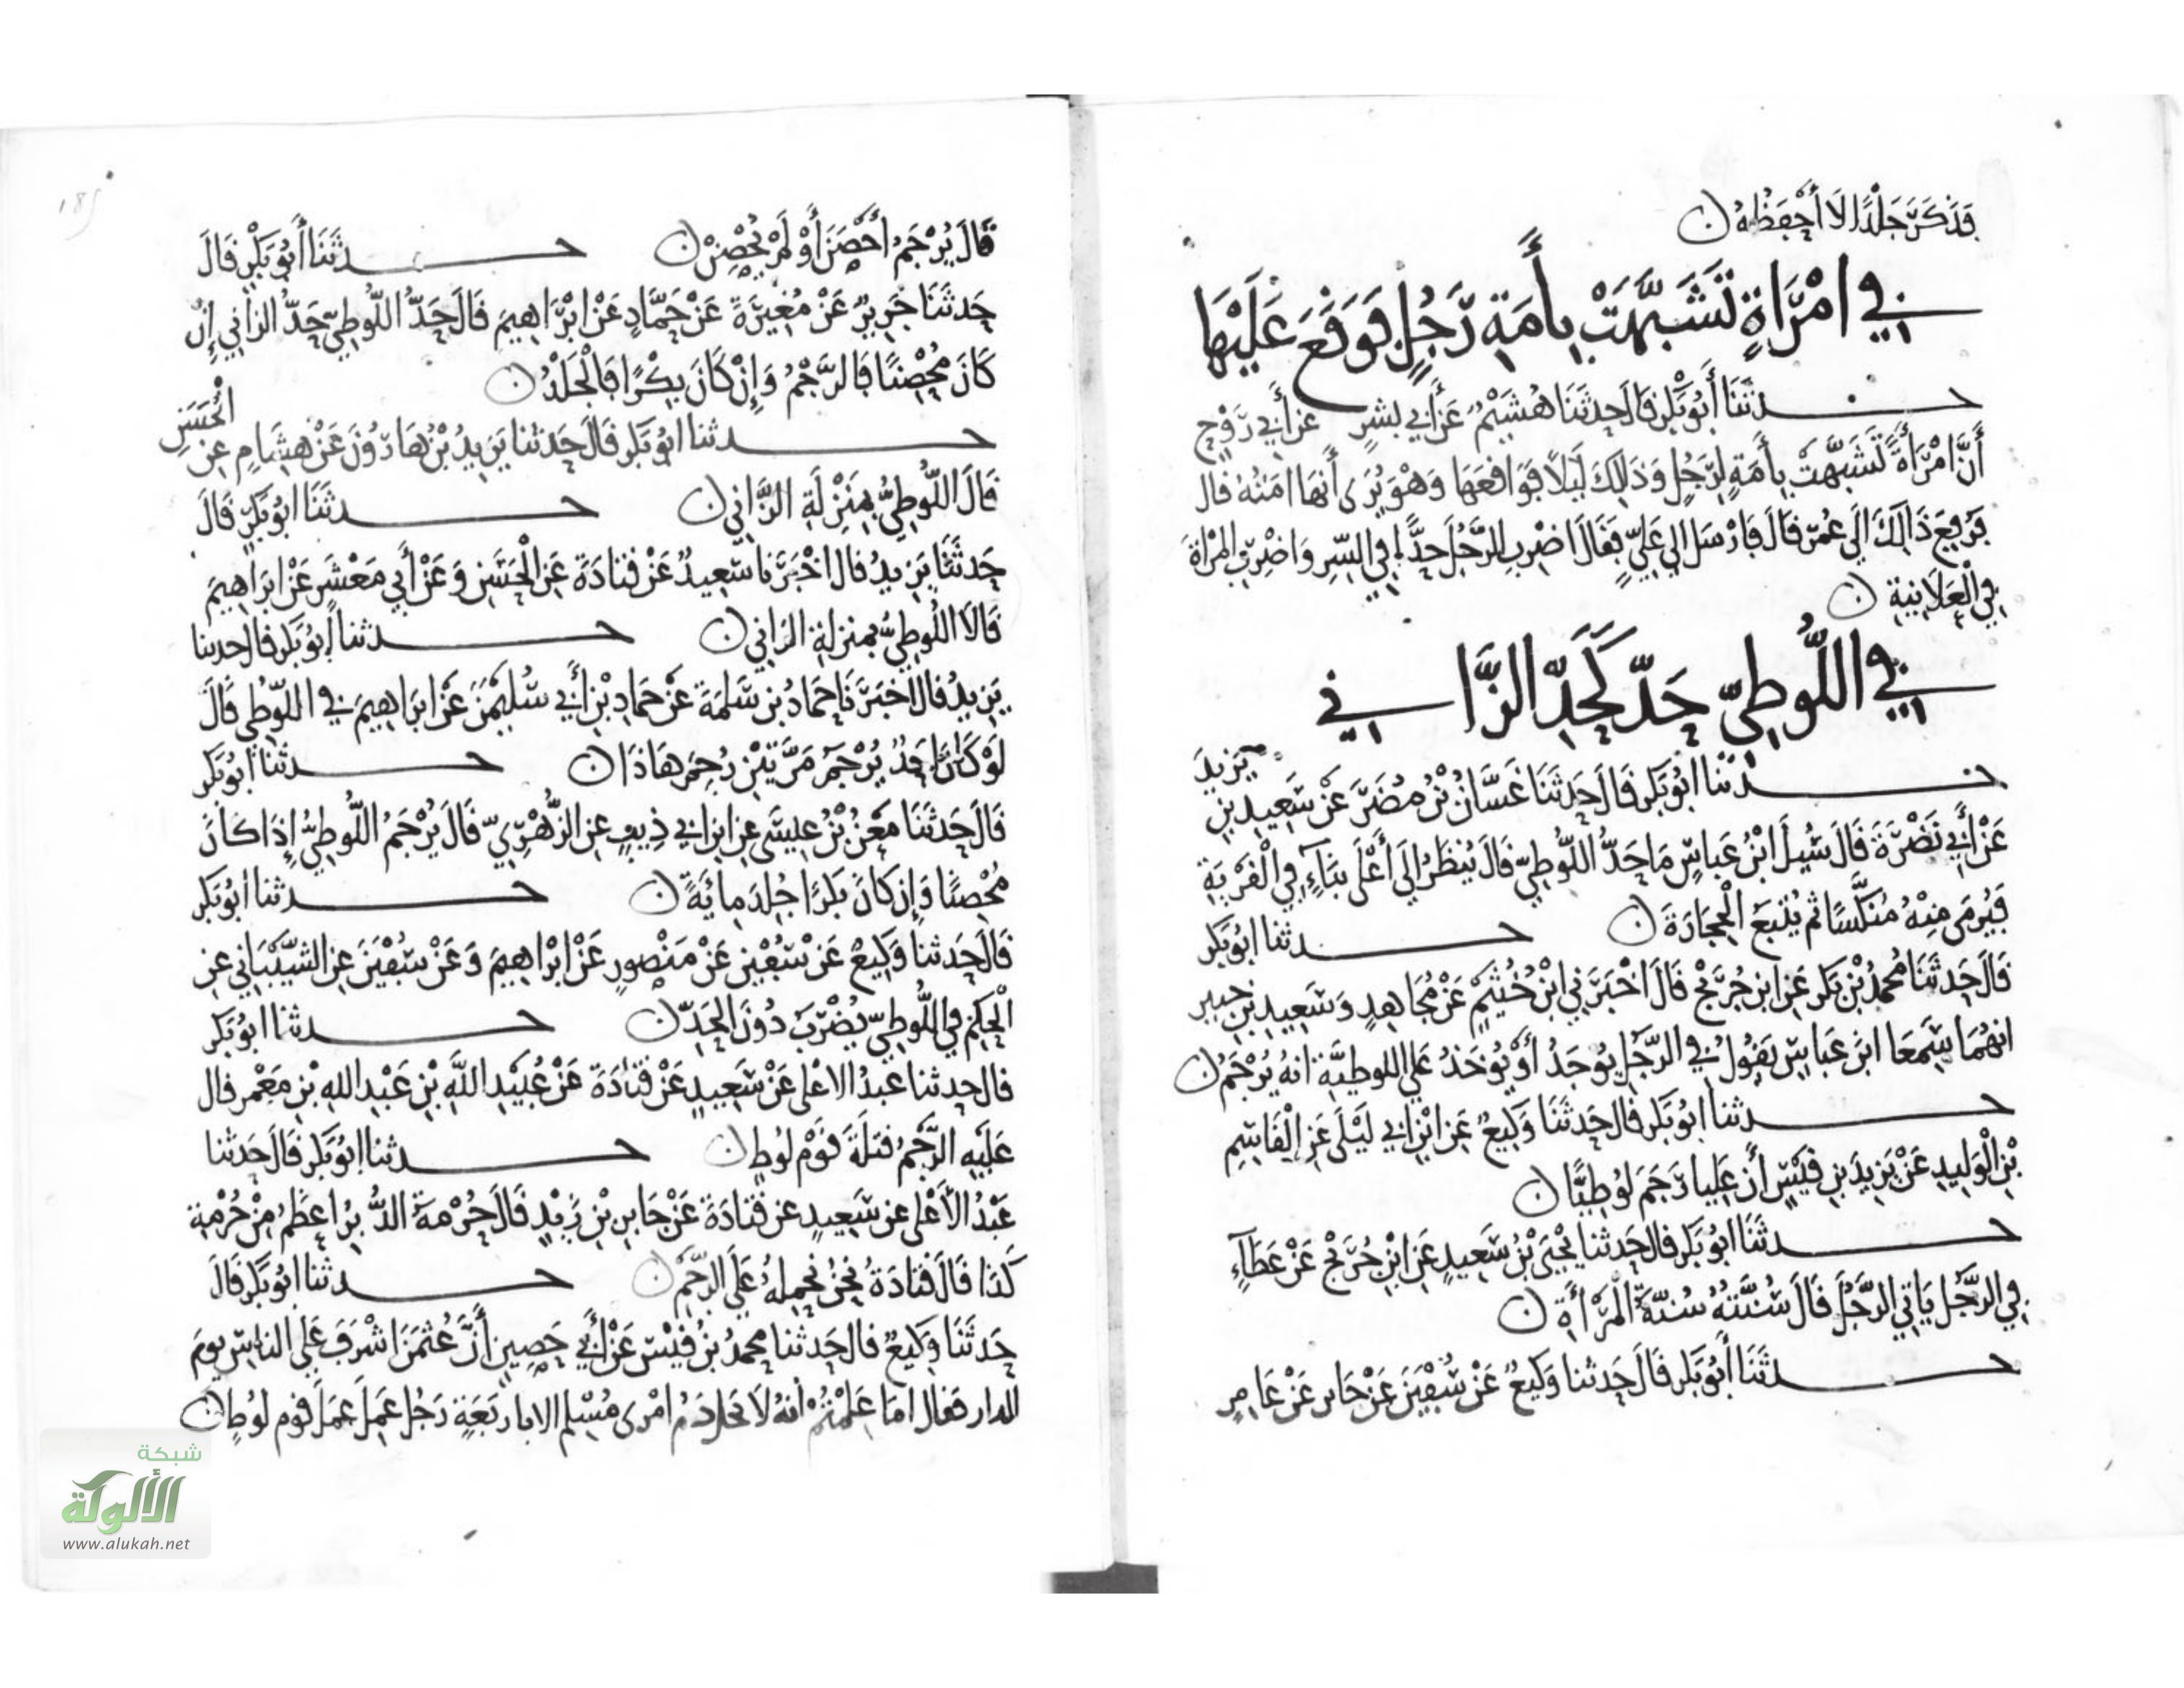 فَذَكَرَ جَلْدًا لَا أَحْفَظُهُ ن
في امْرَأَةٍ تَشَبَّهَتْ بِأَمَةِ رَجُلٍ فَوَقَعَ عَلَيْهَا
حدثَنَا أَبُو بَكْرٍ قَالَ حَدثَنَا هُشَيْمٌ عَنْ أَبي بشرٍ عن أبي رَوْحٍ
أَنَّ امْرَأَةً تَشَبَّهَتْ بِأَمَةٍ لِرَجُلٍ وَذَلِكَ لَيْلًا فَوَاقَعَهَا وَهْوَ يُرَى أَنهَا امَتُهُ قال
فَرُفِعَ ذَلِكَ الَى عُمَرَ قَالَ فَارْسَلَ الى عَلِيٍّ فَقَالَ اضْرِبِ الرَّجُلَ حَدًّا في السِّر وَاضْرِبِ المرْاةَ
في الْعَلَانِيَةِ ن
في اللُّوطِيّ حَدٌّ كَحَدِّ الزَّانِي
حدثنا ابُو بَكر قَالَ حَدثَنَا غَسَّانُ بْنُ مُضَرَ عَنْ سَعِيدِ بنِ يَزيدَ
عَنْ أَبي نَضْرَةَ قَالَ سُئِلَ ابْنُ عَباسٍ مَا حَدُّ اللُّوطِيِّ قَالَ يُنظَرُ الَى أَعْلَى بِنَاءٍ في الْقَرْيَةِ
فَيُرمَى مِنْهُ مُنَكَّسًا ثم يُتْبَعُ الْحِجَارَةَ ن حدثنا ابُو بَكر
قَالَ حَدثَنَا محمدُ بْنُ بَكر عَنِ ابن جُرَيْجٍ قَالَ اخْبَرَني ابْنُ خُثَيْمٍ عَنْ مُجَاهِدٍ وَسَعِيدِ بنِ جبير
انهُمَا سَمِعَا ابنَ عَباسٍ يَقُولُ في الرَّجُلِ يوُجَدُ أَوْ يُوخَذُ عَلى اللوطيَّة انهُ يُرْجَمُ ن
حدثنا ابُو بَكر قال حَدثَنَا وَكِيعٌ عَنِ ابْنِ ابي لَيْلَى عَنِ القَاسِمِ
بْنِ الْوَلِيدِ عَنْ يَزِيدَ بنِ قَيْسٍ أَن عَلِيا رَجَمَ لُوطِيًّا ن
حدثَنَا ابُو بَكر قال حَدثنا يَحْيَى بْنُ سَعِيدٍ عَنِ ابْنِ جُرَيْجٍ عَنْ عَطَاءٍ
في الرَّجُلِ يَاتي الرَّجُلَ قَالَ سُنَّتُهُ سُنَّةُ الْمَرْأَةِ ن
حدثَنَا أَبُو بَكر قَالَ حَدثنا وَكِيعٌ عَنْ سُفْيَنَ عَنْ جَابر عَنْ عَامِرٍ
قَالَ يُرْجَمُ أَحْصَنَ أَوْ لَمْ يُحْصِنْ ن حدثَنَا أَبُو بَكْرٍ قَالَ
حَدثَنَا جَرِيرٌ عَنْ مُغِيرَةَ عَنْ حَمَّادٍ عَنْ ابْرَاهِيمَ قَالَ حَدُّ اللُّوطِيّ حَدُّ الزاني إِنْ
كَانَ مُحْصِنًا فَالرَّجْمُ وَإِنْ كَانَ بِكْرًا فَالْجَلْدُ ن
حدثنا ابُو بَكر قَالَ حَدثنا يَزِيدُ بْنُ هَارُونَ عَنْ هِشَامٍ عن الْحَسَنِ
قَالَ اللُّوطِيُّ بِمَنْزِلَةِ الزَّاني ن حدثَنَا ابُو بَكرٍ قَالَ
حَدثَنَا يَزيدُ قال اخْبَرَنا سَعِيدٌ عَنْ قتَادَةَ عَنِ الْحَسَنِ وَعَنْ أَبي مَعْشَرٍ عَنْ ابرَاهِيمَ
قَالَا اللُّوطِيُّ بمنزلةِ الزاني ن حدثنا أبُو بَكر قال حدثنا
يَزِيدُ قال اخبَرَنَا حمادُ بن سَلَمَةَ عَنْ حمادِ بْنِ أَبي سُلَيْمَنَ عَنْ ابرَاهِيمَ في اللُّوطِي قَالَ
لَوْ كَانَ احَدٌ يُرْجَمُ مَرَّتَيْنِ رُجِمَ هَاذَا ن حدثنا ابُو بَكر
قَالَ حَدثَنَا مَعْنُ بْنُ عِيسَى عنِ ابن ابي ذِيبٍ عنِ الزُّهْرِيِّ قَالَ يُرْجَمُ اللُّوطِيُّ إِذَا كَانَ
مُحْصِنًا وَإِن كَانَ بِكْرًا جُلِدَ مِايَةً ن حدثنا ابُو بَكر
قَالَ حَدثنا وَكِيعٌ عَنْ سُفْيَنَ عَنْ مَنْصُورٍ عَنْ ابْرَاهِيمَ وَعَنْ سُفْيَنَ عنِ الشَّيْبَانِي عنِ
الْحَكَمِ في اللُّوطِيِّ يُضْرَبُ دُونَ الْحَدِّ ن حدثنا ابُو بَكر
قال حدثنا عبدُ الاعْلى عَنْ سَعِيدٍ عَنْ قتَادَةَ عَنْ عُبَيْدِ اللَّه بْنِ عَبْدِ الله بْنِ مَعْمر قال
عَلَيْهِ الرَّجْمُ قتْلَةَ قَوْمِ لُوطٍ ن حدثنا ابُو بَكر قَالَ حَدثنا
عَبْدُ الأَعْلى عن سَعِيدٍ عن قَتَادَةَ عَنْ جَابِرِ بْنِ زَيْدٍ قَالَ حُرْمَةُ الدُّبرُ اعظَمُ مِنْ حُرْمةِ
كَذَا قَالَ قَتَادَةُ نَحنُ نحمِلُهُ عَلَى الرَّجْمِ ن حدثنا ابُو بَكر قَالَ
حَدثَنَا وَكِيعٌ قال حَدثنا محمدُ بْنُ قَيْسٍ عَنْ أَبي حَصِينٍ أَنَّ عُثمَنَ اشْرَفَ عَلى الناسِ يومَ
الدار فقال امَا عَلِمْتُمْ انهُ لَا يَحلُ دَمُ امْرِى مُسْلِمٍ الا باربَعَةٍ رَجُل عَمِلَ عَمَلَ قوم لوُطٍ ن
١٨٢
شبكة
الألوكة
www.alukah.net